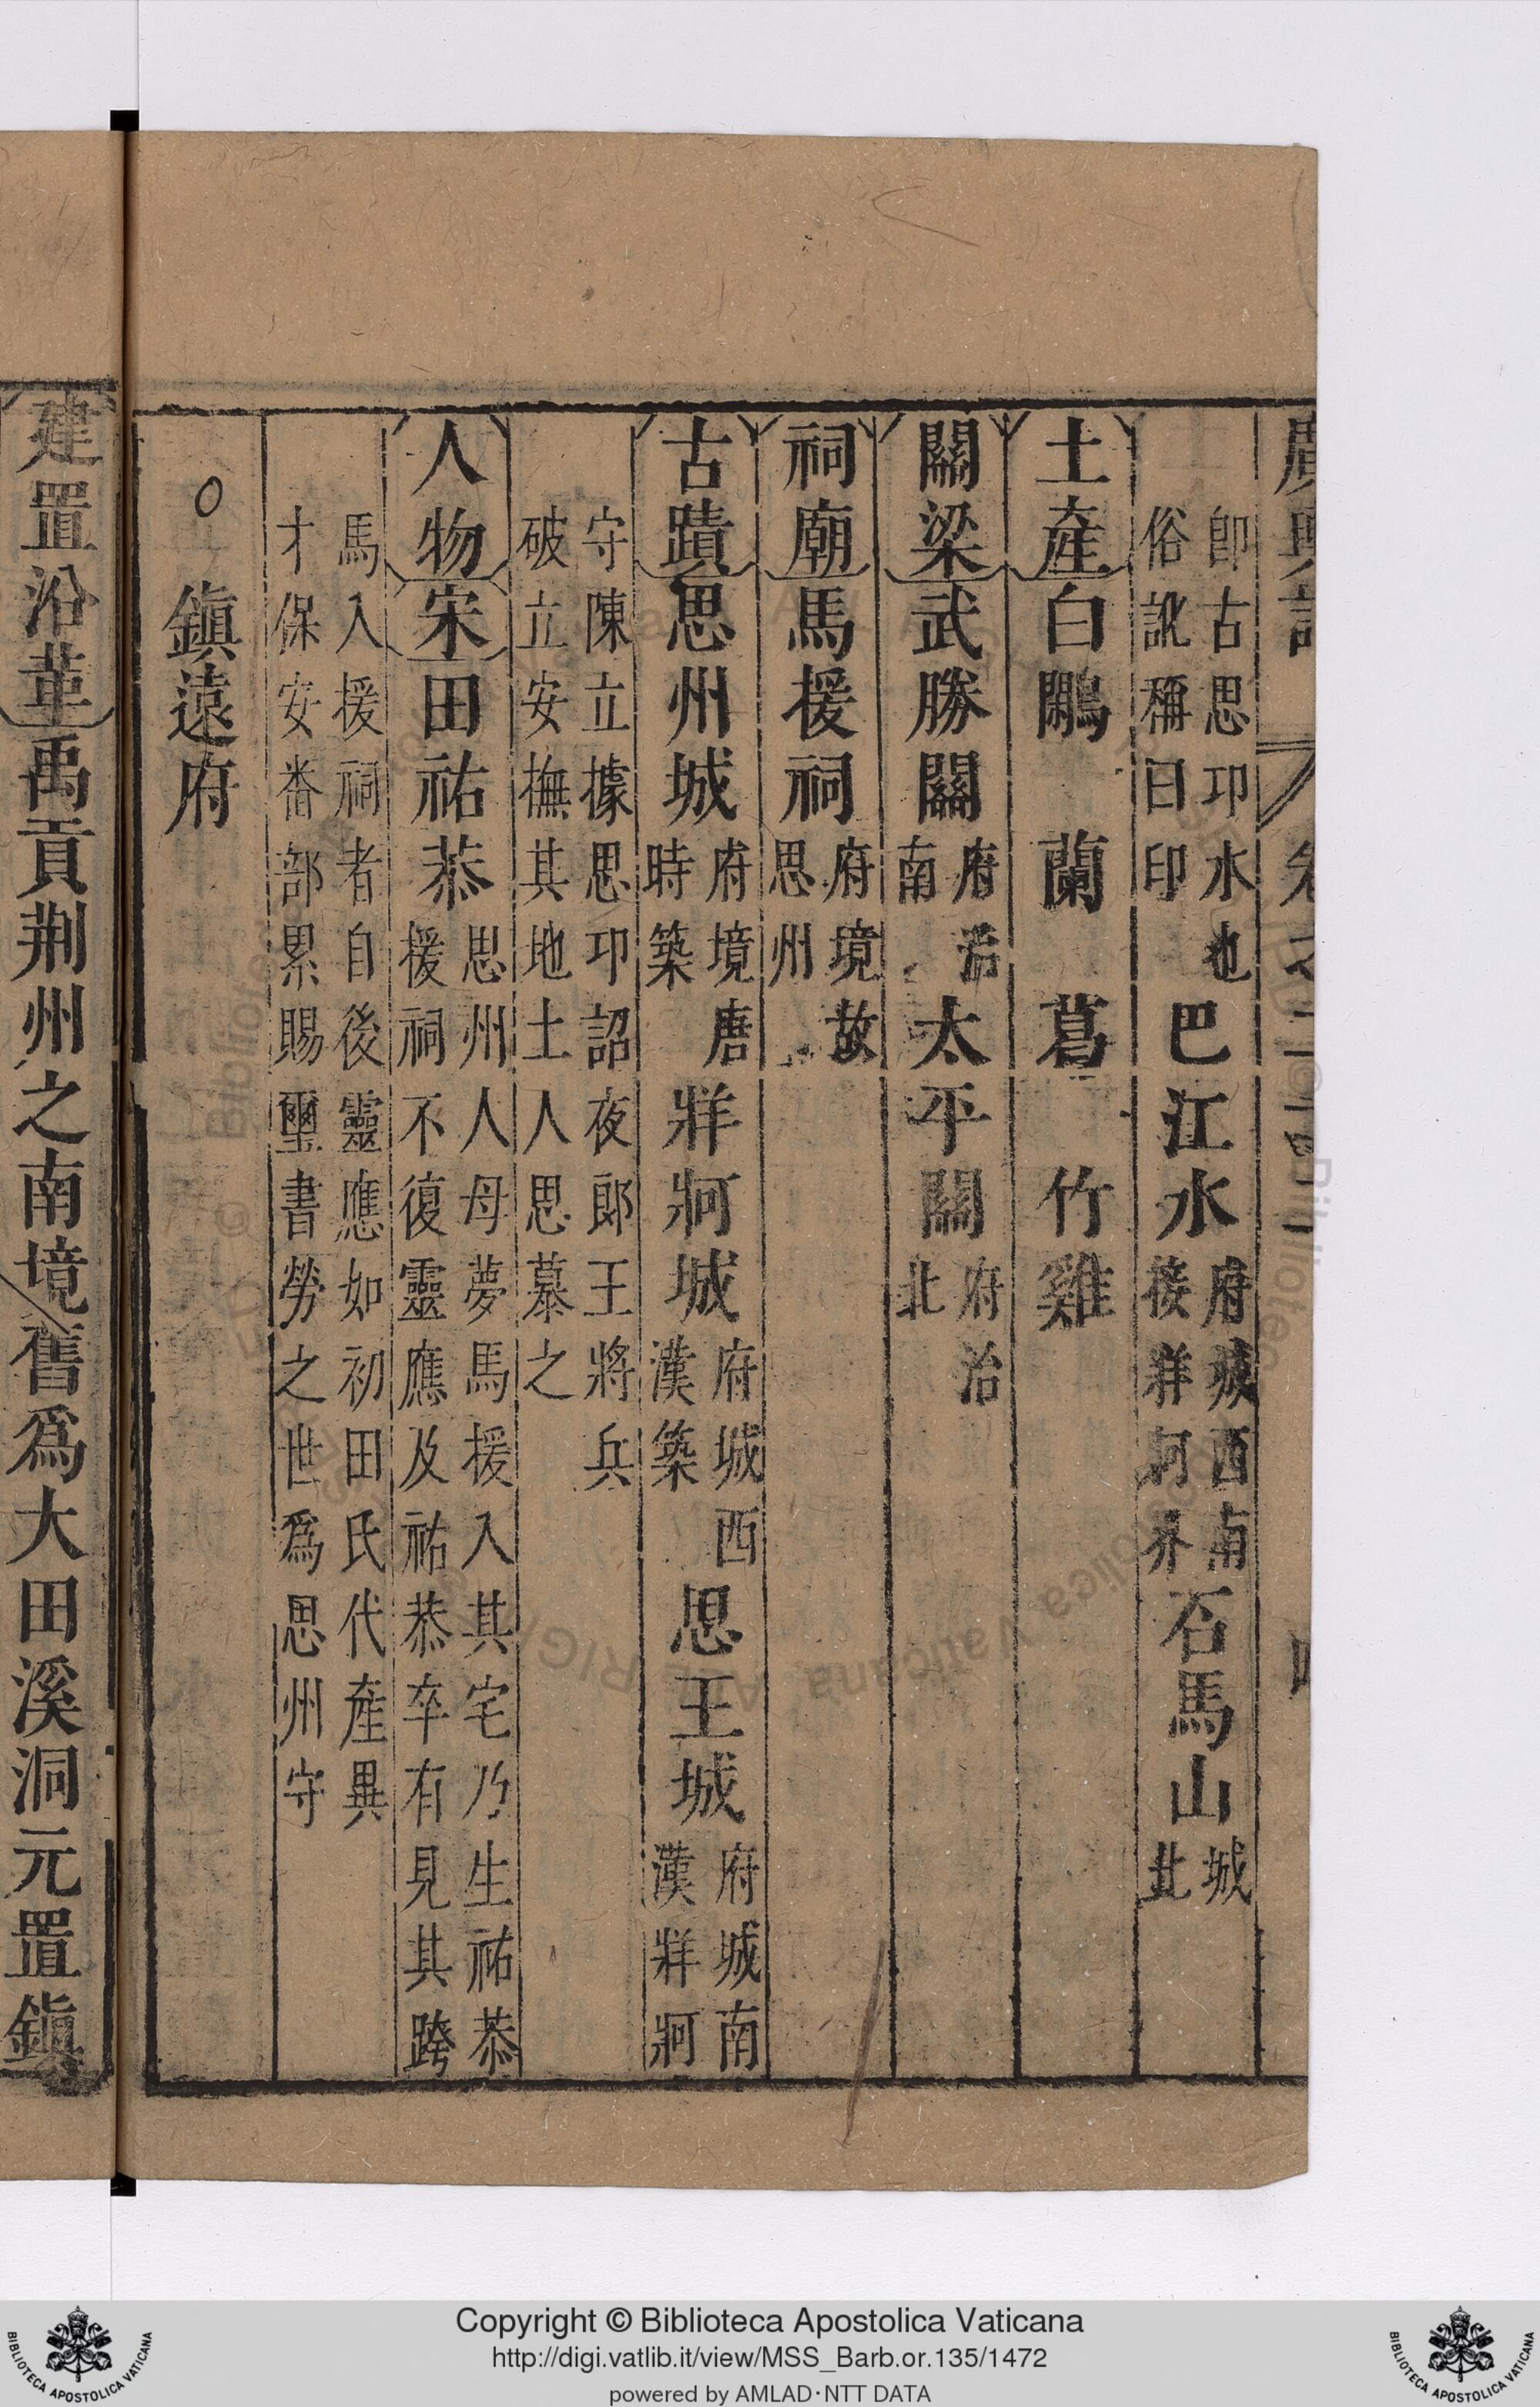 廣輿記 卷之二十四
卽古思卭水也
俗訛稱曰印
巴江水
府城西南
接牂牁界
石馬山
城
北
土産 白鷴 蘭 葛 竹雞
關梁 武勝關
府治
南
太平關
府治
北
祠廟 馬援祠
府境故
思州
古蹟 思州城
府境唐
時築
牂牁城
府城西
漢築
思王城
府城南
漢牂牁
守陳立據思卭詔夜郎王將兵
破立安撫其地土人思慕之
人物 宋 田祐恭
思州人母夢馬援入其宅乃生祐恭
援祠不復靈應及祐恭卒有見其跨
馬入援祠者自後靈應如初田氏代産異
才保安畨部累賜璽書勞之世爲思州守
鎭遠府
建置沿革 禹貢荆州之南境舊爲大田溪洞元置鎭
Copyright © Biblioteca Apostolica Vaticana
http://digi.vatlib.it/view/MSS_Barb.or.135/1472
powered by AMLAD·NTT DATA
BIBLIOTECA APOSTOLICA VATICANA
BIBLIOTECA APOSTOLICA VATICANA